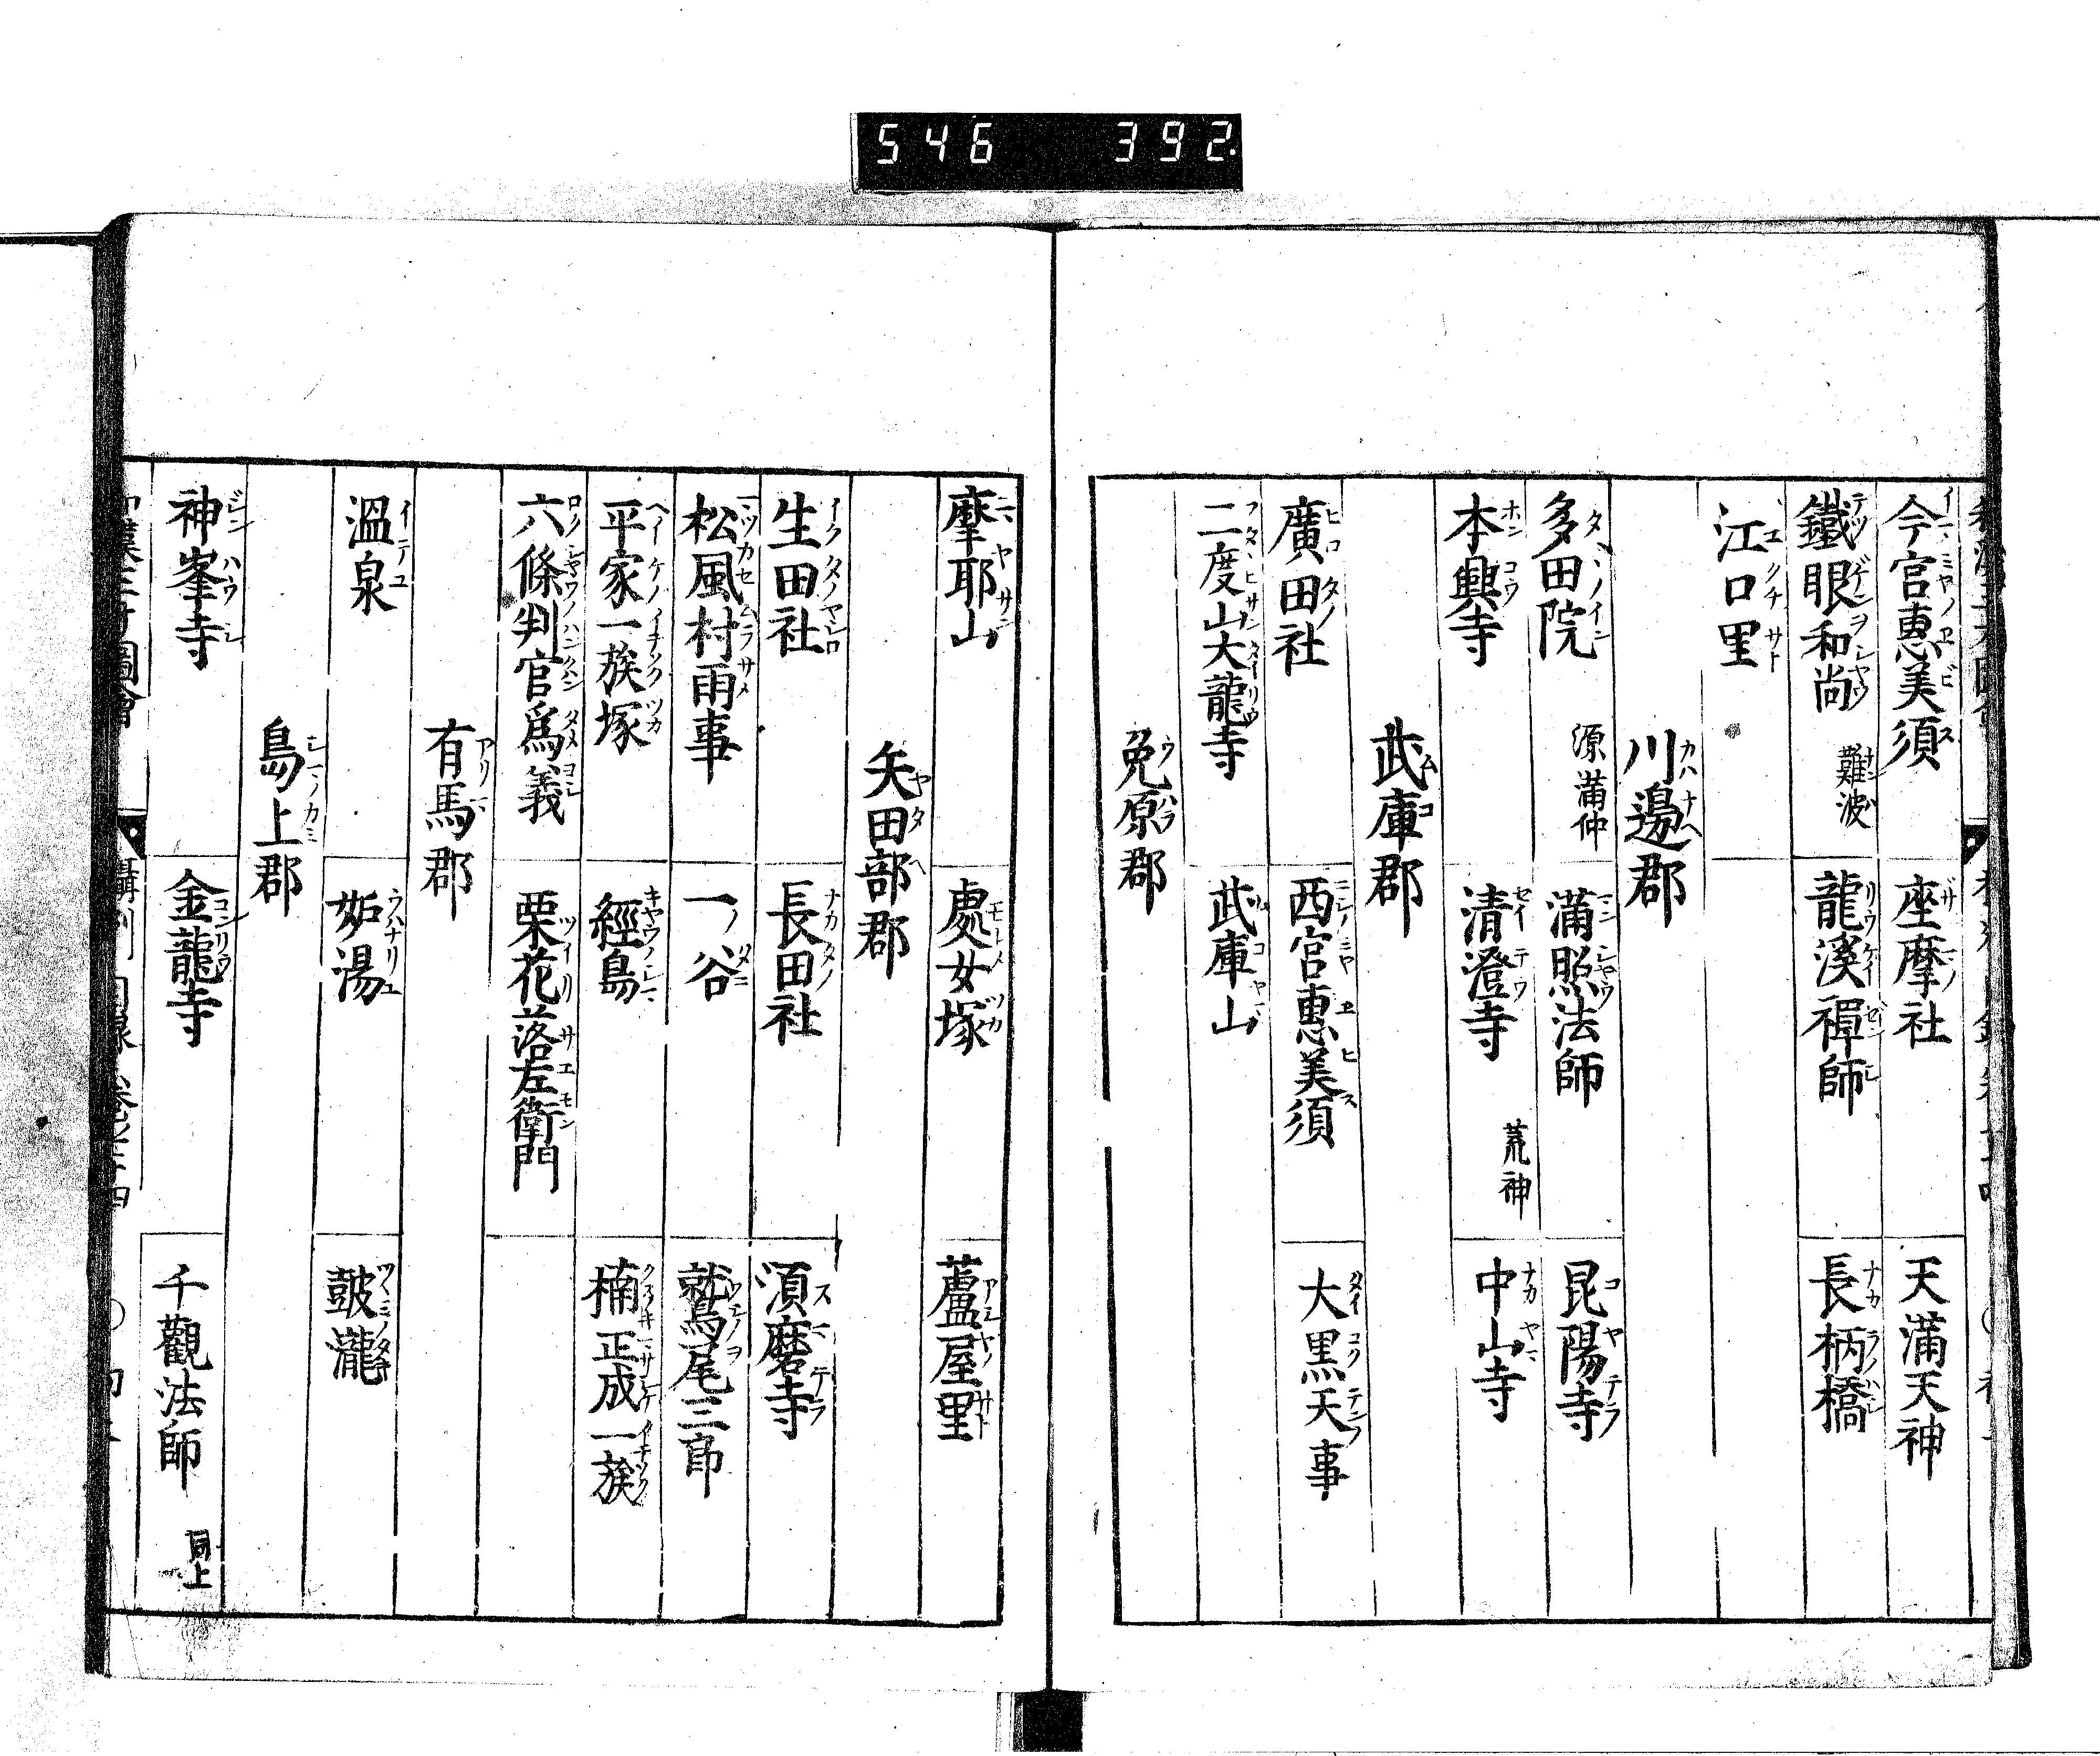 546 392.
今宮惠美須 座摩社 天滿天神
鐵眼和尚 難波 龍溪禪師 長柄橋
江口里
川邊郡
多田院 源滿仲 滿照法師 昆陽寺
本興寺 清澄寺 荒神 中山寺
武庫郡
廣田社 西宮惠美須 大黒天事
二度山大龍寺 武庫山
兔原郡
摩耶山 處女塚 蘆屋里
矢田部郡
生田社 長田社 須磨寺
松風村雨事 一ノ谷 鷲尾三郎
平家一族塚 經島 楠正成一族
六條判官爲義 栗花落左衛門
有馬郡
溫泉 妬湯 鼓瀧
島上郡
神峯寺 金龍寺 千觀法師 同上